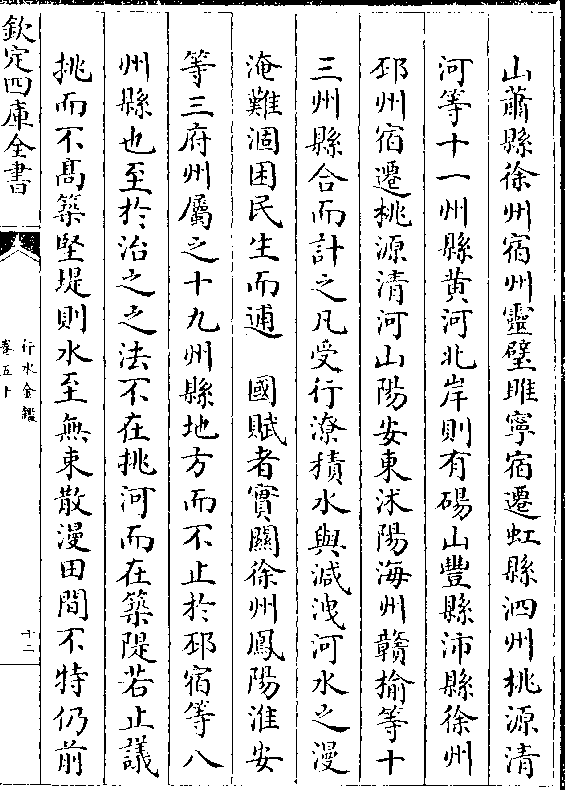 山蕭縣徐州宿州靈璧睢寧宿遷虹縣泗州桃源清
河等十一州縣黄河北岸則有碭山豐縣沛縣徐州
邳州宿遷桃源清河山陽安東沭陽海州贛榆等十
三州縣合而計之凡受行潦積水與減洩河水之漫
淹難涸困民生而逋　國賦者實關徐州鳳陽淮安
等三府州屬之十九州縣地方而不止於邳宿等八
州縣也至於治之之法不在挑河而在築隄若止議
挑而不髙築堅堤則水至無束散漫田間不特仍前
欽定四庫全書
行水金鑑
卷五十
十二